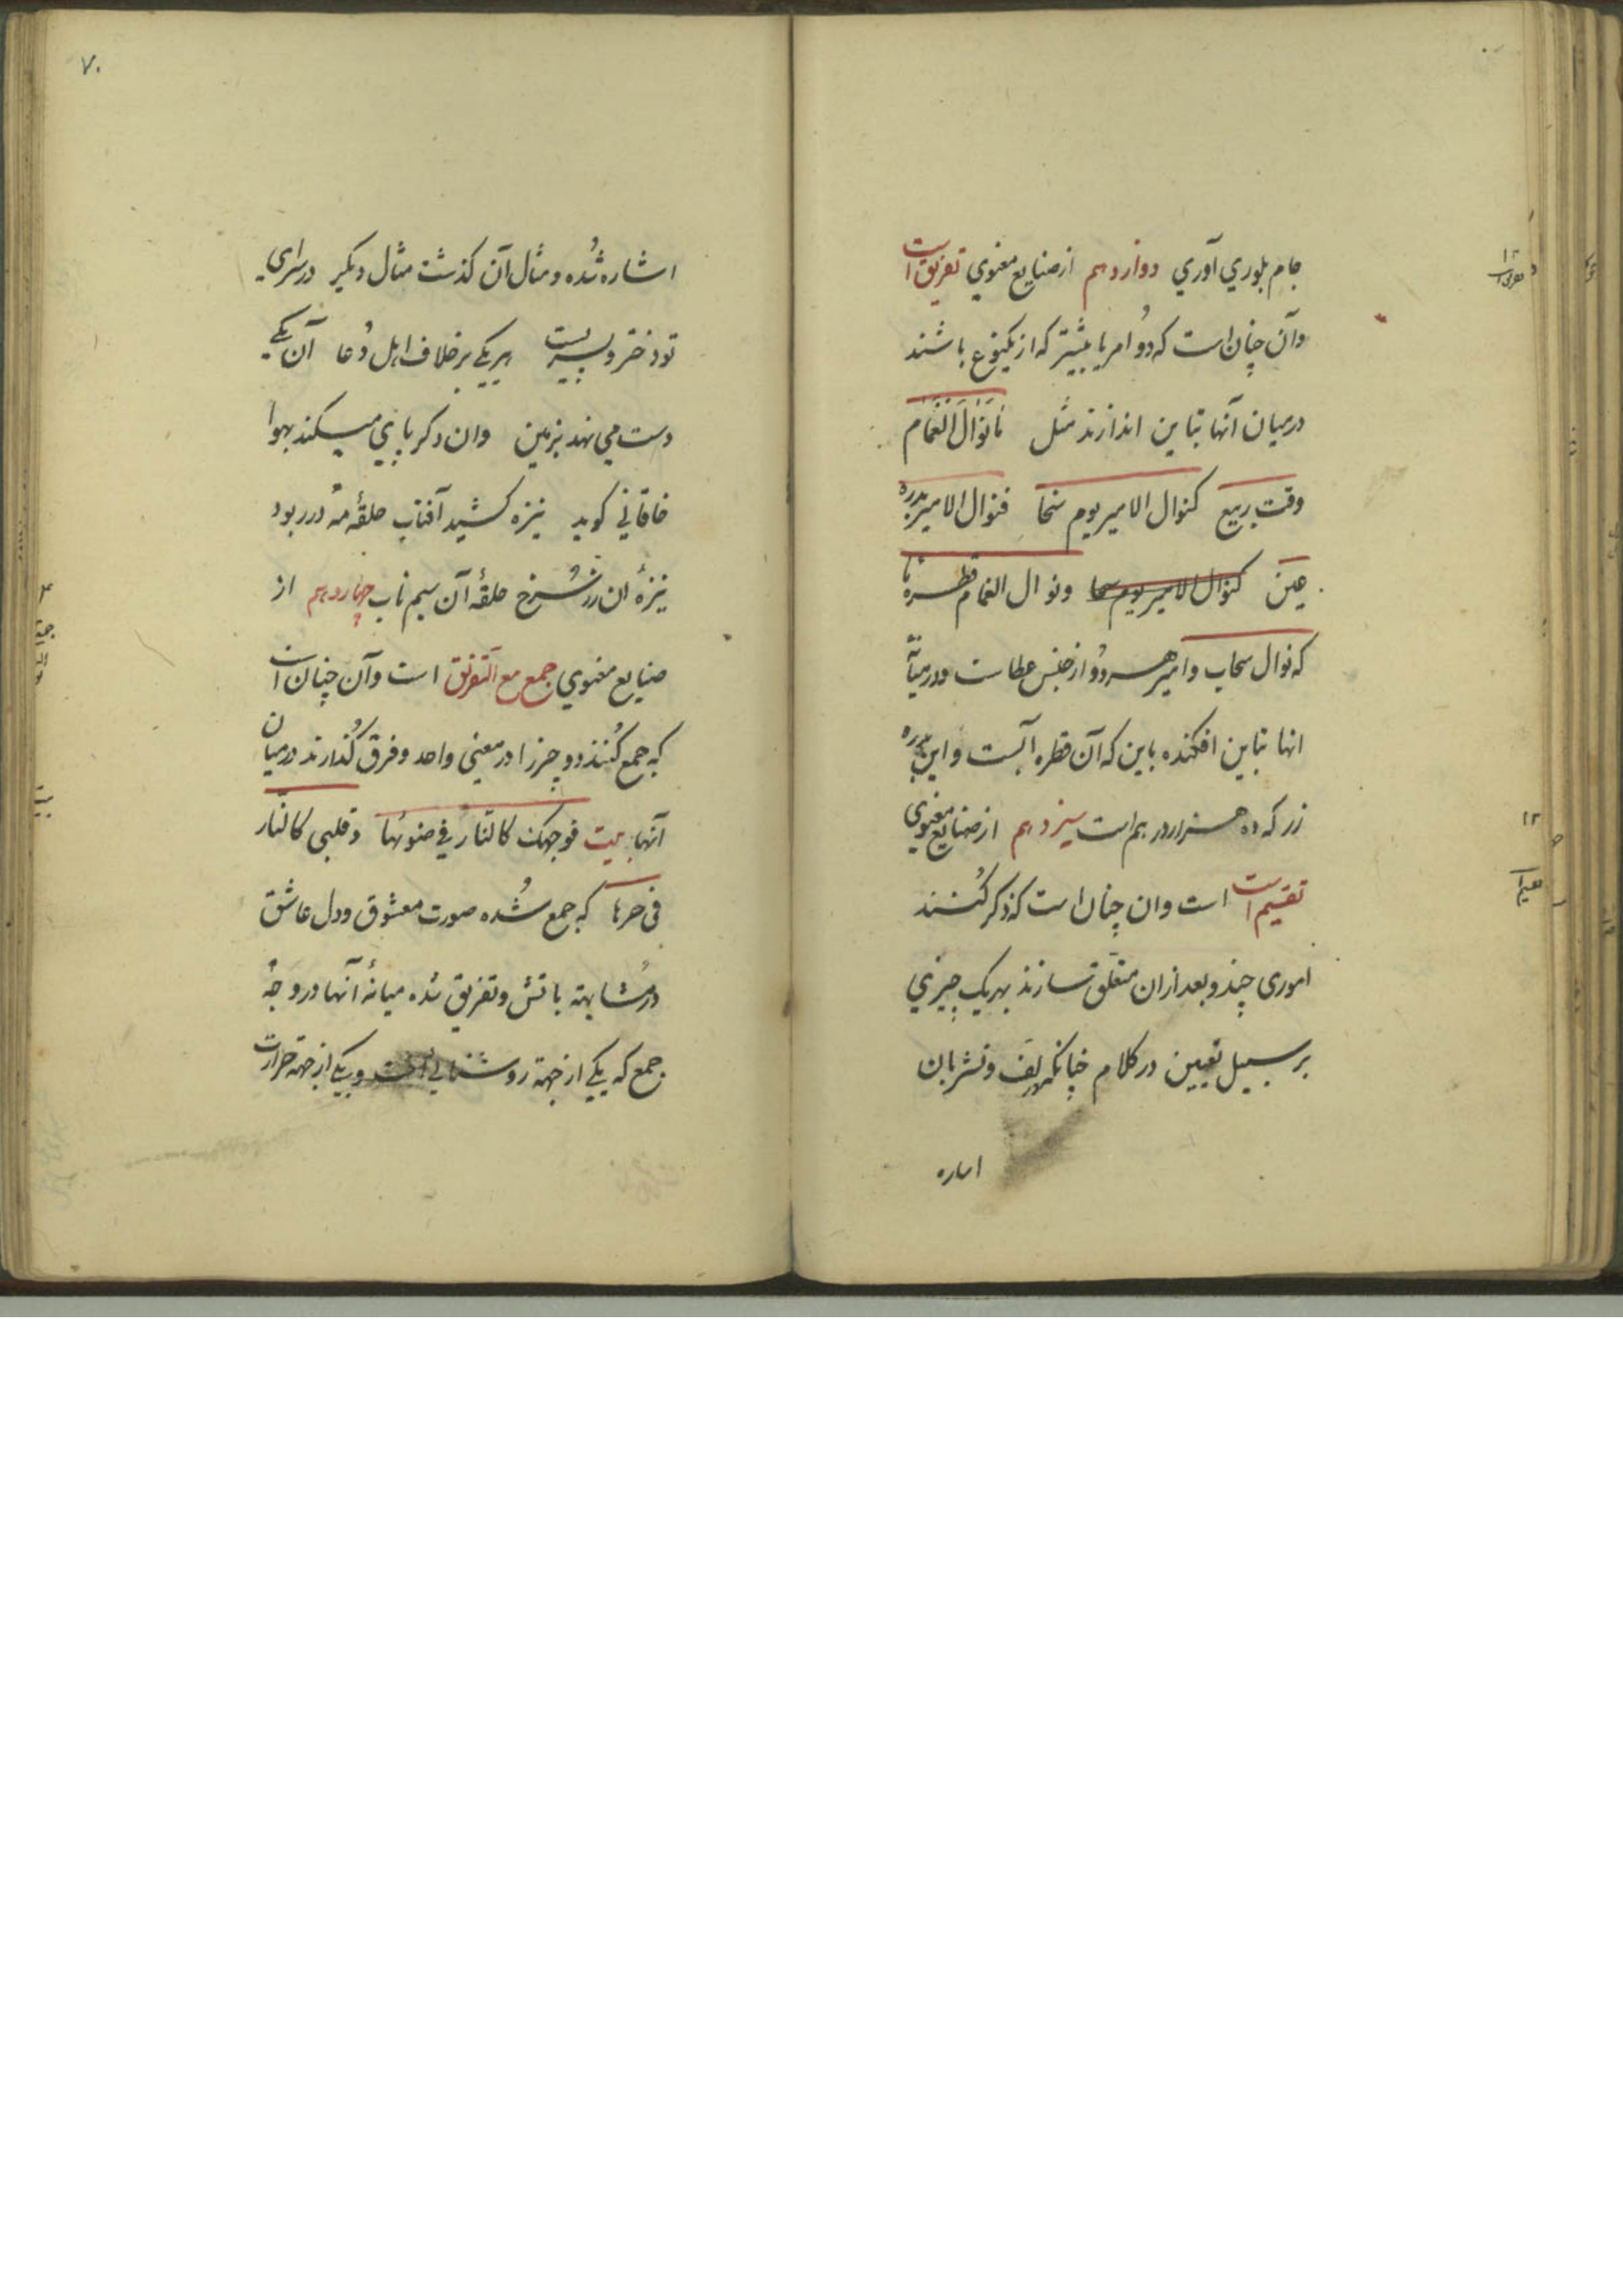 جام بلوري آوري دوازدهم از صنايع معنوي تفريق است
وآن چنان است كه دو امر يا بيشتر كه از يكنوع باشند
درميان آنها تباين اندازند مثل مَا نَوَالُ الْغَمَام
وقت ربيع كنوال الامير يوم سخا فنوال الامير بدره
عين كنوال الامير يوم سخا ونوال الغمام قطره ما
كه نوال سحاب وامير هر دو از جنس عطاست ودرميانه
انها تباين افكنده باين كه آن قطره آبست واين بدره
زر كه ده هزار درهم است سيزدهم از صنايع معنوي
تقسيم است است وان چنان است كه ذكر كنند
اموري چند وبعد ازان متعلق سازند بهريك چيزي
بر سبيل تعيين در كلام چنانكه در لف ونشر بان
اساره
٧٠
اشاره شده ومثال آن كذشت مثال ديكر در سراي
تو دختر وپسريست هر يكي بر خلاف اهل دُعا آن يكي
دست مي نهد بزمين وان دكر پاي ميكند بهوا
خاقاني كويد نيزه كشيد آفتاب حلقهٔ مه در ربود
نيزهٔ ان زر سُرخ حلقهٔ آن سيم ناب چهاردهم از
صنايع معنوي جمع مع التفريق است وآن چنان است
كه جمع كُنند دو چيز را در معني واحد وفرق كُذارند درميان
آنها بيت فوجهك كالنار في ضوئها وقلبي كالنار
في حرها كه جمع شُده صورت معشوق ودل عاشق
در مُشابهة باتش وتفريق شده ميانهٔ آنها در وجه
جمع كه يكي از جهة روشنايي است ويكي از جهة حرارت